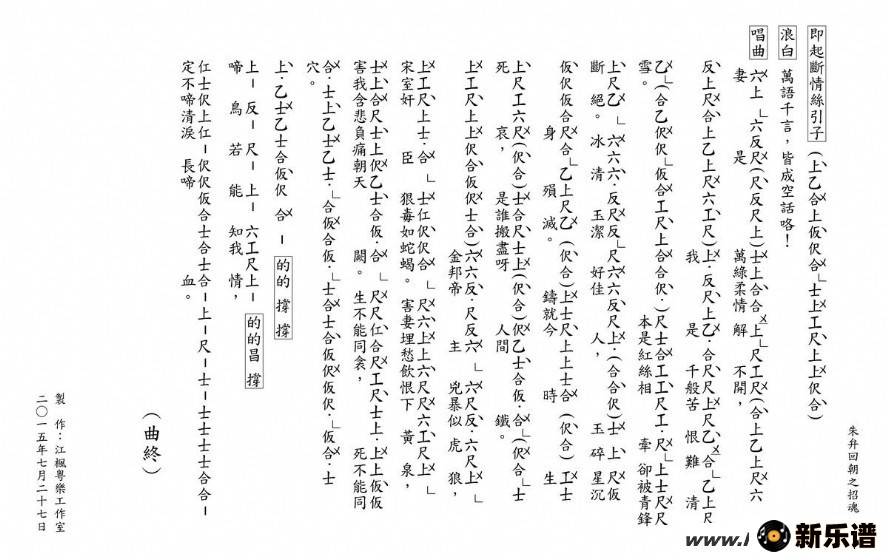 朱弁回朝之招魂
即起斷情絲引子（上乙合上仮伬合士上工尺上上伬合）
浪白 萬語千言，皆成空話咯！
唱曲 六上 六反尺(尺反尺上)士上合合 上尺工尺(合上乙上尺六
妻 是 萬綠柔情 解 不開，
反上尺合上乙上尺六工尺)上·反尺上乙·合尺尺上尺乙合乙上尺
我 是 千般苦 恨難 清
乙(合乙伬伬仮合工尺上合合伬·)尺士合工工尺工·尺上士尺尺
雪。 本是紅絲相 牽 卻被青鋒
上尺乙 六六六·反尺反尺六六反尺上·(合合伬)士上尺仮
斷 絕。冰清 玉潔 好佳 人， 玉碎星沉
仮伬仮合尺合乙上尺乙(伬合)上士尺上上士合(伬合)工士
身 殞滅。 鑄就今 時 生
上尺工六尺(伬合)士合尺士上(伬合)伬乙士合仮·合(伬合)士
死 哀， 是誰搬盡呀 人間 鐵。
上工尺上上伬合仮伬士合)六六反·尺反六 六尺反·六尺上
金邦帝 主 兇暴似虎 狼，
上工尺上士·合 士仜伬伬合 尺六上上六尺尺六工尺上
宋室奸 臣 狠毒如蛇蝎。 害妻埋愁飲恨下 黃 泉，
士上合尺士上伬乙士合仮·合 尺尺仜合尺工尺士上·上上仮仮
害我含悲負痛朝天 闕。生不能同衾， 死不能同
合·士上乙士乙士·合仮合仮·士合士合仮伬仮伬·仮合·士
穴。
上·乙士乙士合仮伬 合– 的的 撐撐
上–反–尺–上–六工尺上– 的的昌 撐
啼 鳥 若 能 知我 情，
仜士伬上仜–伬伬仮合士合士合–上–尺–士–士士士士合合–
定不啼清淚 長啼 血。
（曲終）
製 作：江楓粵樂工作室
二〇一五年七月二十七日
新乐谱